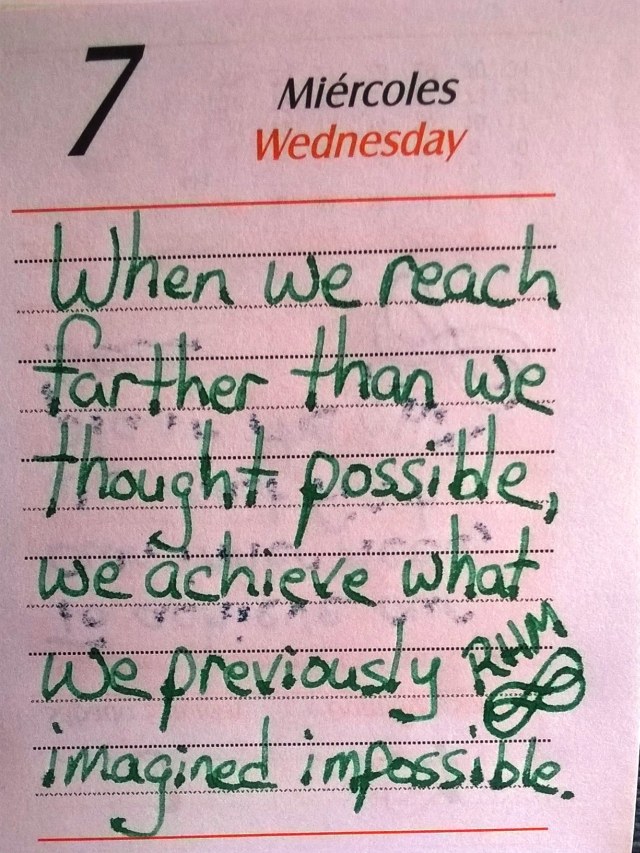 7
Miércoles
Wednesday
When we reach
farther than we
thought possible,
we achieve what
we previously RHM
imagined impossible.